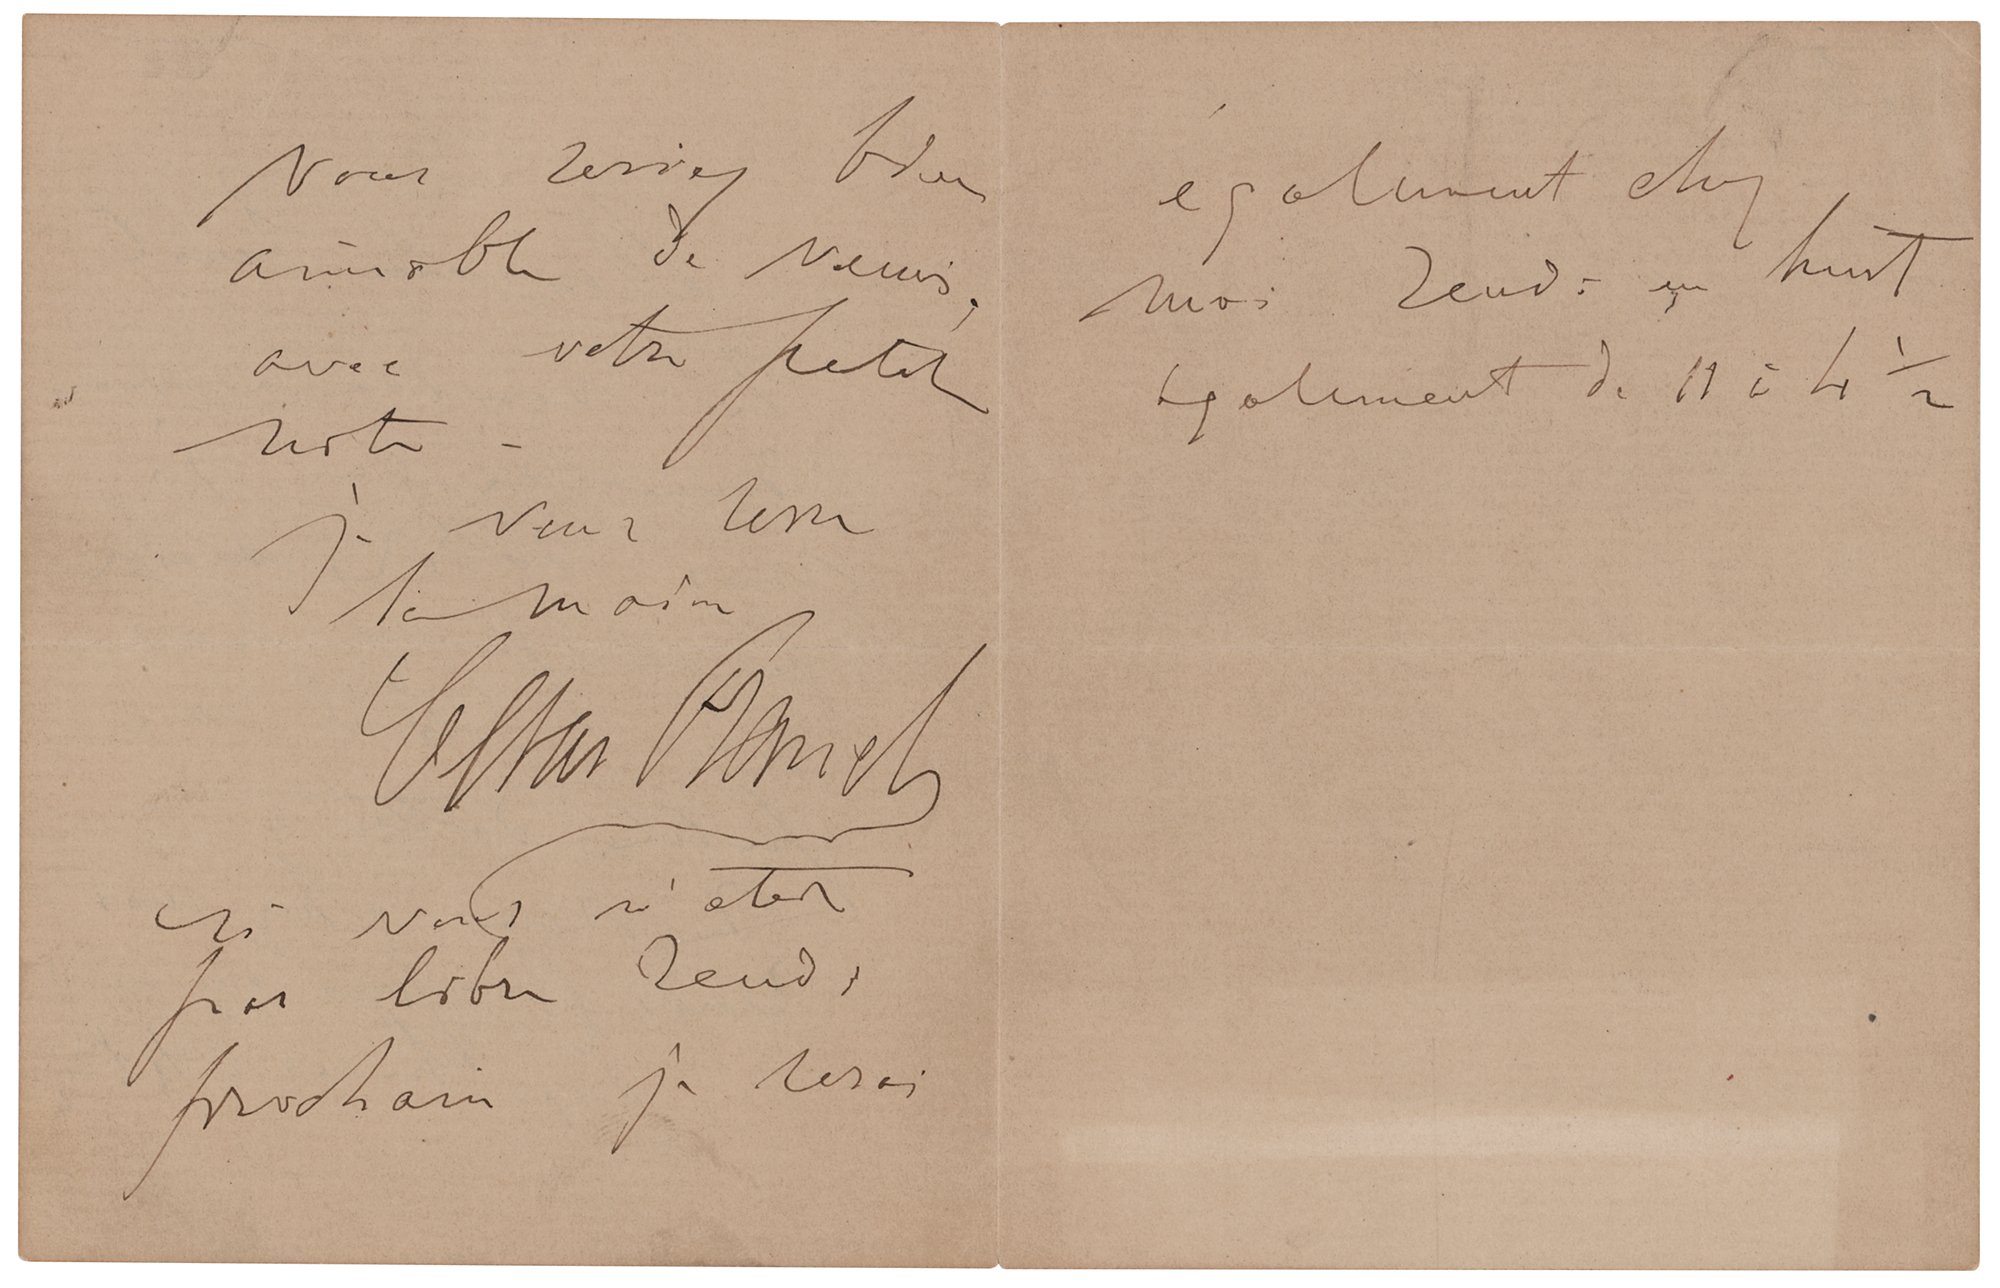 Vous seriez bien
aimable de venir,
avec votre petite
note -
je vous serre
la main
si vous n'etes
pas libre Jeudi
prochain je serai
également chez
moi Jeudi en huit
également de 11 à 4 1/2